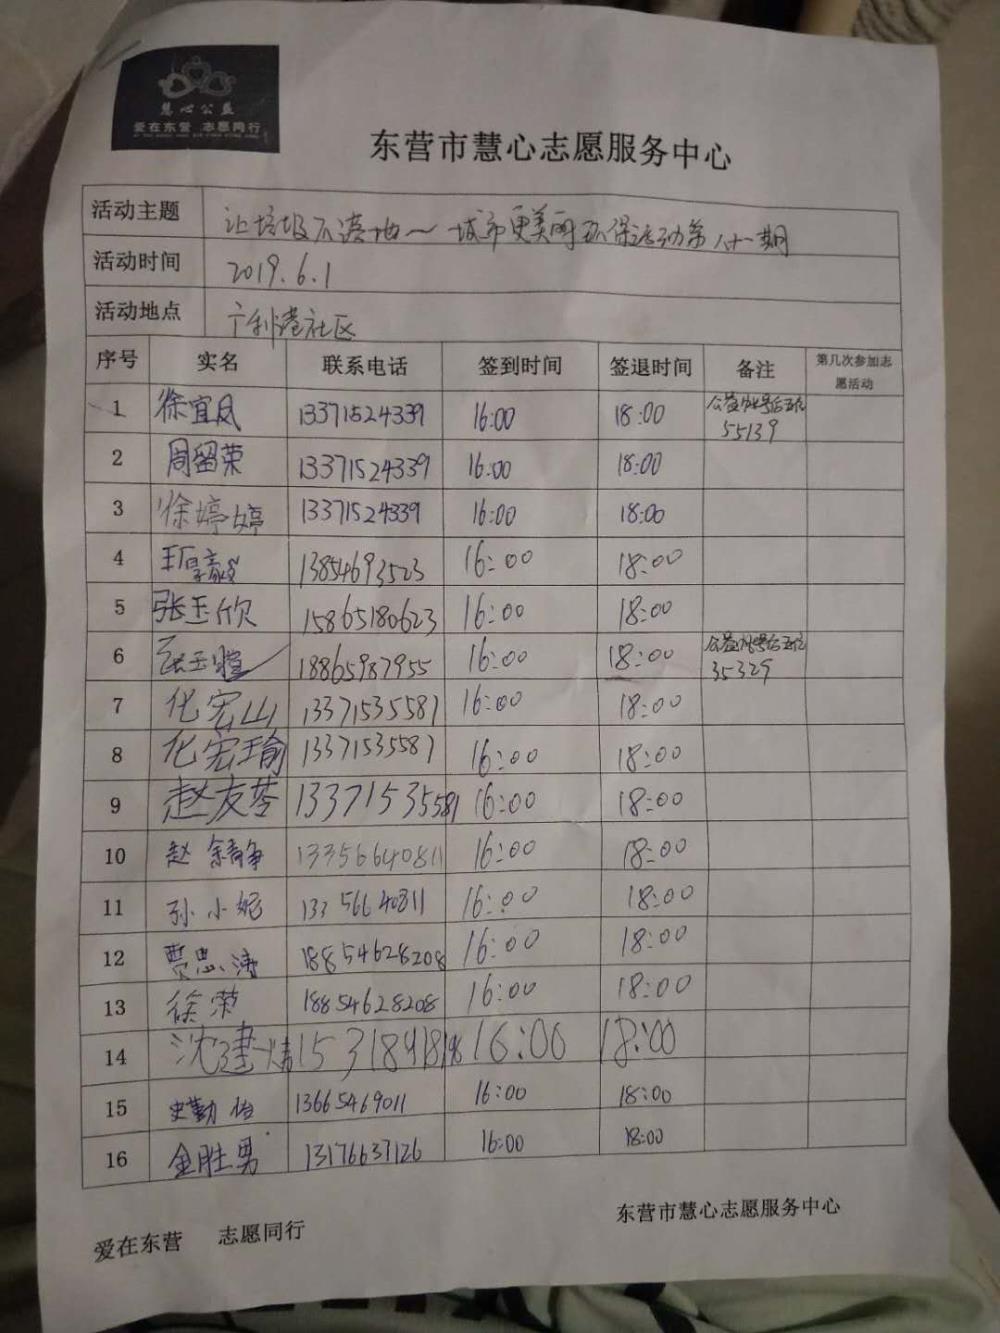 慧心公益
爱在东营 志愿同行
东营市慧心志愿服务中心
活动主题 让垃圾不落地~城市更美丽环保活动第八十一期
活动时间 2019.6.1
活动地点 广利港社区
序号 实名 联系电话 签到时间 签退时间 备注 第几次参加志愿活动
1 徐宜凤 13371524339 16:00 18:00 公益 55139
2 周留荣 13371524339 16:00 18:00
3 徐婷婷 13371524339 16:00 18:00
4 13854693523 16:00 18:00
5 张玉欣 15865180623 16:00 18:00
6 18865987955 16:00 18:00 公益 35329
7 化宏山 13371535581 16:00 18:00
8 化宏瑜 13371535581 16:00 18:00
9 赵友苓 13371535581 16:00 18:00
10 赵 13356640811 16:00 18:00
11 孙小妮 13356640811 16:00 18:00
12 贾思涛 18854628208 16:00 18:00
13 徐荣 18854628208 16:00 18:00
14 沈建 16:00 18:00
15 史勤怡 13665469011 16:00 18:00
16 金胜男 13176637126 16:00 18:00
东营市慧心志愿服务中心
爱在东营 志愿同行